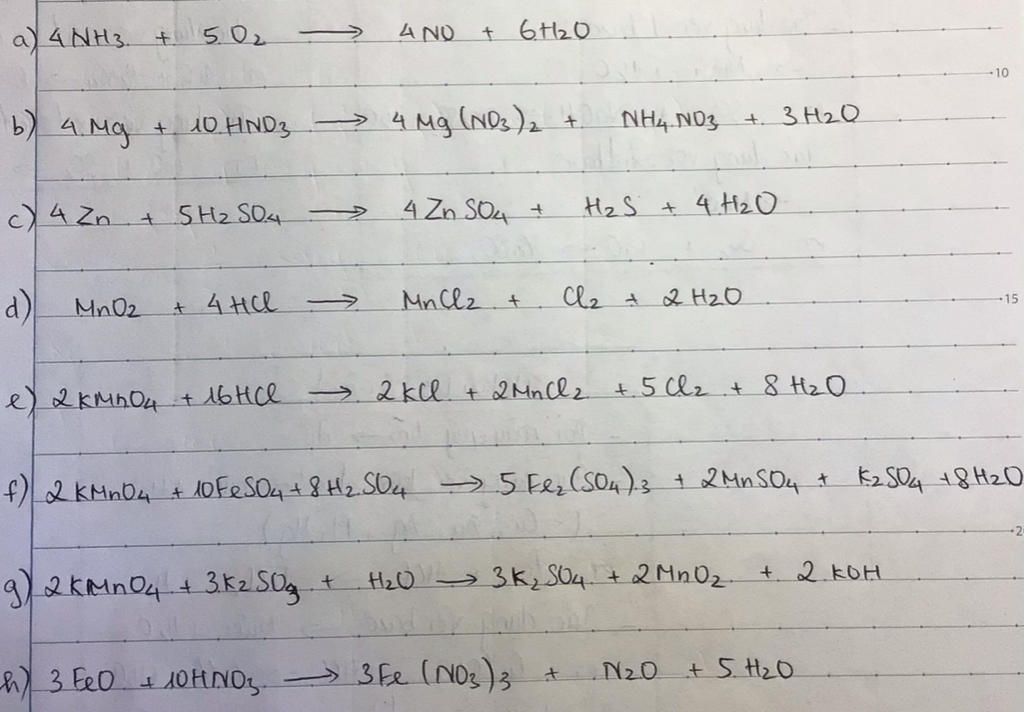 a) 4 NH3 + 5 O2 ⟶ 4 NO + 6 H2O
10
b) 4 Mg + 10 HNO3 ⟶ 4 Mg (NO3)2 + NH4NO3 + 3 H2O
c) 4 Zn + 5 H2SO4 ⟶ 4 ZnSO4 + H2S + 4 H2O
d) MnO2 + 4 HCl ⟶ MnCl2 + Cl2 + 2 H2O
15
e) 2 KMnO4 + 16 HCl ⟶ 2 KCl + 2 MnCl2 + 5 Cl2 + 8 H2O
f) 2 KMnO4 + 10 FeSO4 + 8 H2SO4 ⟶ 5 Fe2(SO4)3 + 2 MnSO4 + K2SO4 + 8 H2O
2
g) 2 KMnO4 + 3 K2SO3 + H2O ⟶ 3 K2SO4 + 2 MnO2 + 2 KOH
h) 3 FeO + 10 HNO3 ⟶ 3 Fe (NO3)3 + N2O + 5 H2O